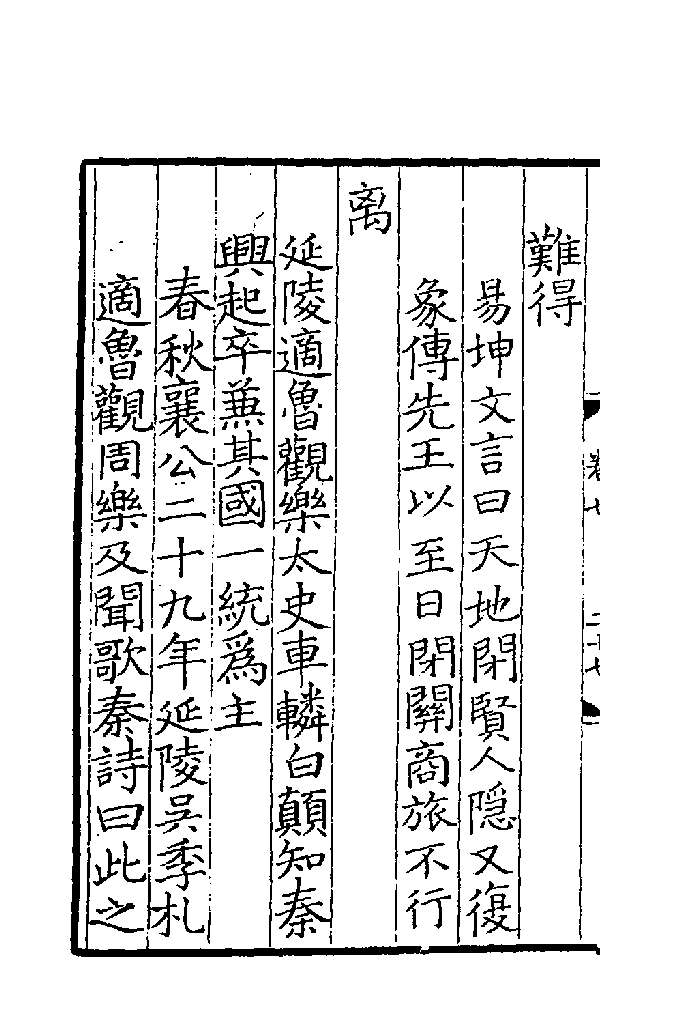 難得
易坤文言曰天地閉賢人隠又復
象傳先王以至日閉關商旅不行
离
延陵適魯觀樂太史車轔白顛知秦
興起卒蒹其國一統爲主
春秋襄公二十九年延陵吳季札
適魯觀周樂及聞歌秦詩曰此之